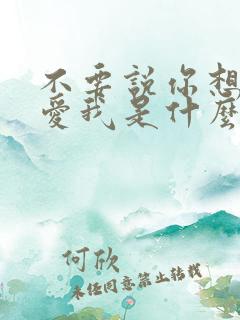 不要說你想
愛我是什麼
何欣
未經同意禁止轉載